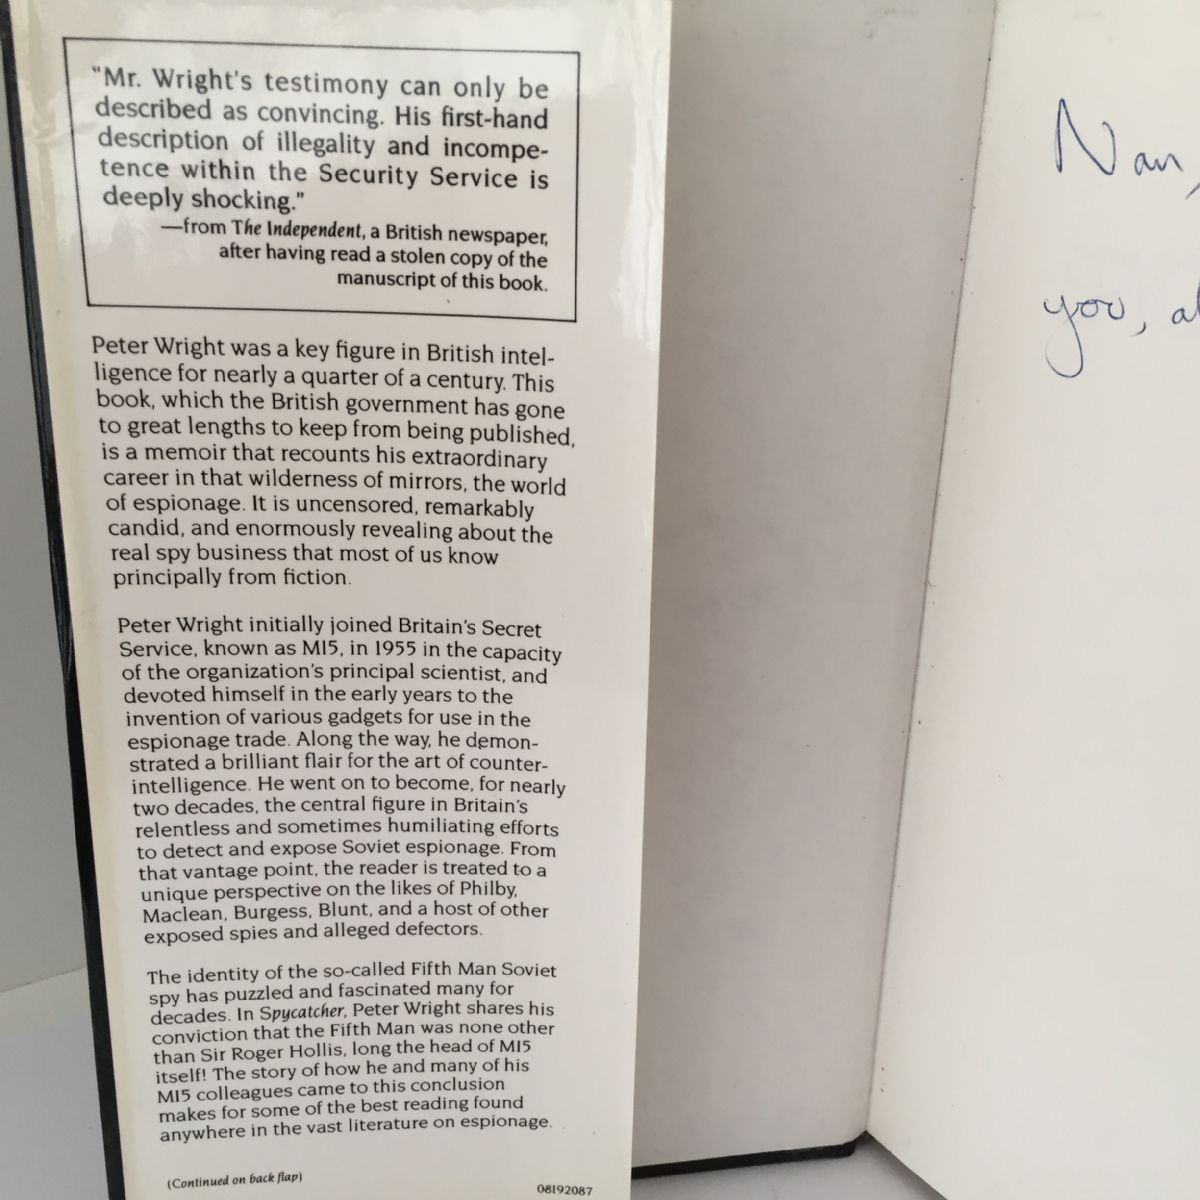 "Mr. Wright's testimony can only be
described as convincing. His first-hand
description of illegality and incompe-
tence within the Security Service is
deeply shocking."
—from The Independent, a British newspaper,
after having read a stolen copy of the
manuscript of this book.
Peter Wright was a key figure in British intel-
ligence for nearly a quarter of a century. This
book, which the British government has gone
to great lengths to keep from being published,
is a memoir that recounts his extraordinary
career in that wilderness of mirrors, the world
of espionage. It is uncensored, remarkably
candid, and enormously revealing about the
real spy business that most of us know
principally from fiction.
Peter Wright initially joined Britain's Secret
Service, known as MI5, in 1955 in the capacity
of the organization's principal scientist, and
devoted himself in the early years to the
invention of various gadgets for use in the
espionage trade. Along the way, he demon-
strated a brilliant flair for the art of counter-
intelligence. He went on to become, for nearly
two decades, the central figure in Britain's
relentless and sometimes humiliating efforts
to detect and expose Soviet espionage. From
that vantage point, the reader is treated to a
unique perspective on the likes of Philby,
Maclean, Burgess, Blunt, and a host of other
exposed spies and alleged defectors.
The identity of the so-called Fifth Man Soviet
spy has puzzled and fascinated many for
decades. In Spycatcher, Peter Wright shares his
conviction that the Fifth Man was none other
than Sir Roger Hollis, long the head of MI5
itself! The story of how he and many of his
MI5 colleagues came to this conclusion
makes for some of the best reading found
anywhere in the vast literature on espionage.
(Continued on back flap)
08192087
Nan,
you,